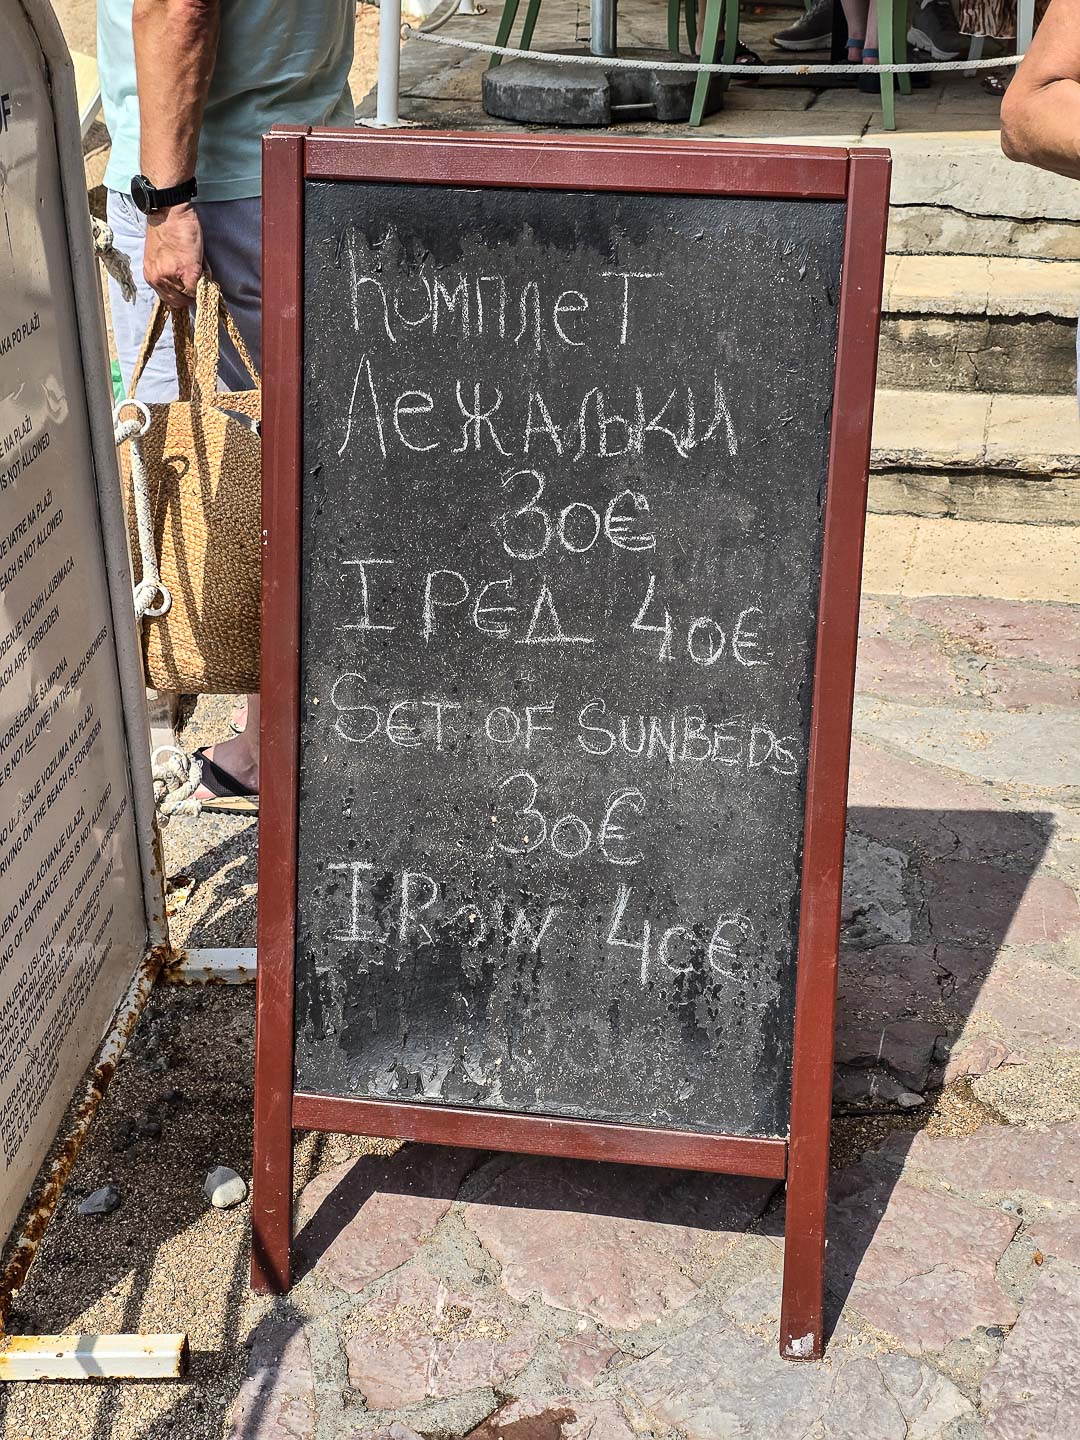 AKA PO PLAŽI
E NA PLAŽI
IS NOT ALLOWED
JE VATRE NA PLAŽI
EACH IS NOT ALLOWED
ODENJE KUĆNIH LJUBIMACA
ACH ARE FORBIDDEN
KORIŠĆENJE ŠAMPONA
E IS NOT ALLOWED IN THE BEACH SHOWERS
VOZILIMA NA PLAŽU
RIVING ON THE BEACH IS FORBIDDEN
JENO NAPLAĆIVANJE ULAZA
ING OF ENTRANCE FEES IS NOT ALLOWED
Комплет
Лежальки
30€
I РЕД 40€
SET OF SUNBEDS
30€
I ROW 40€